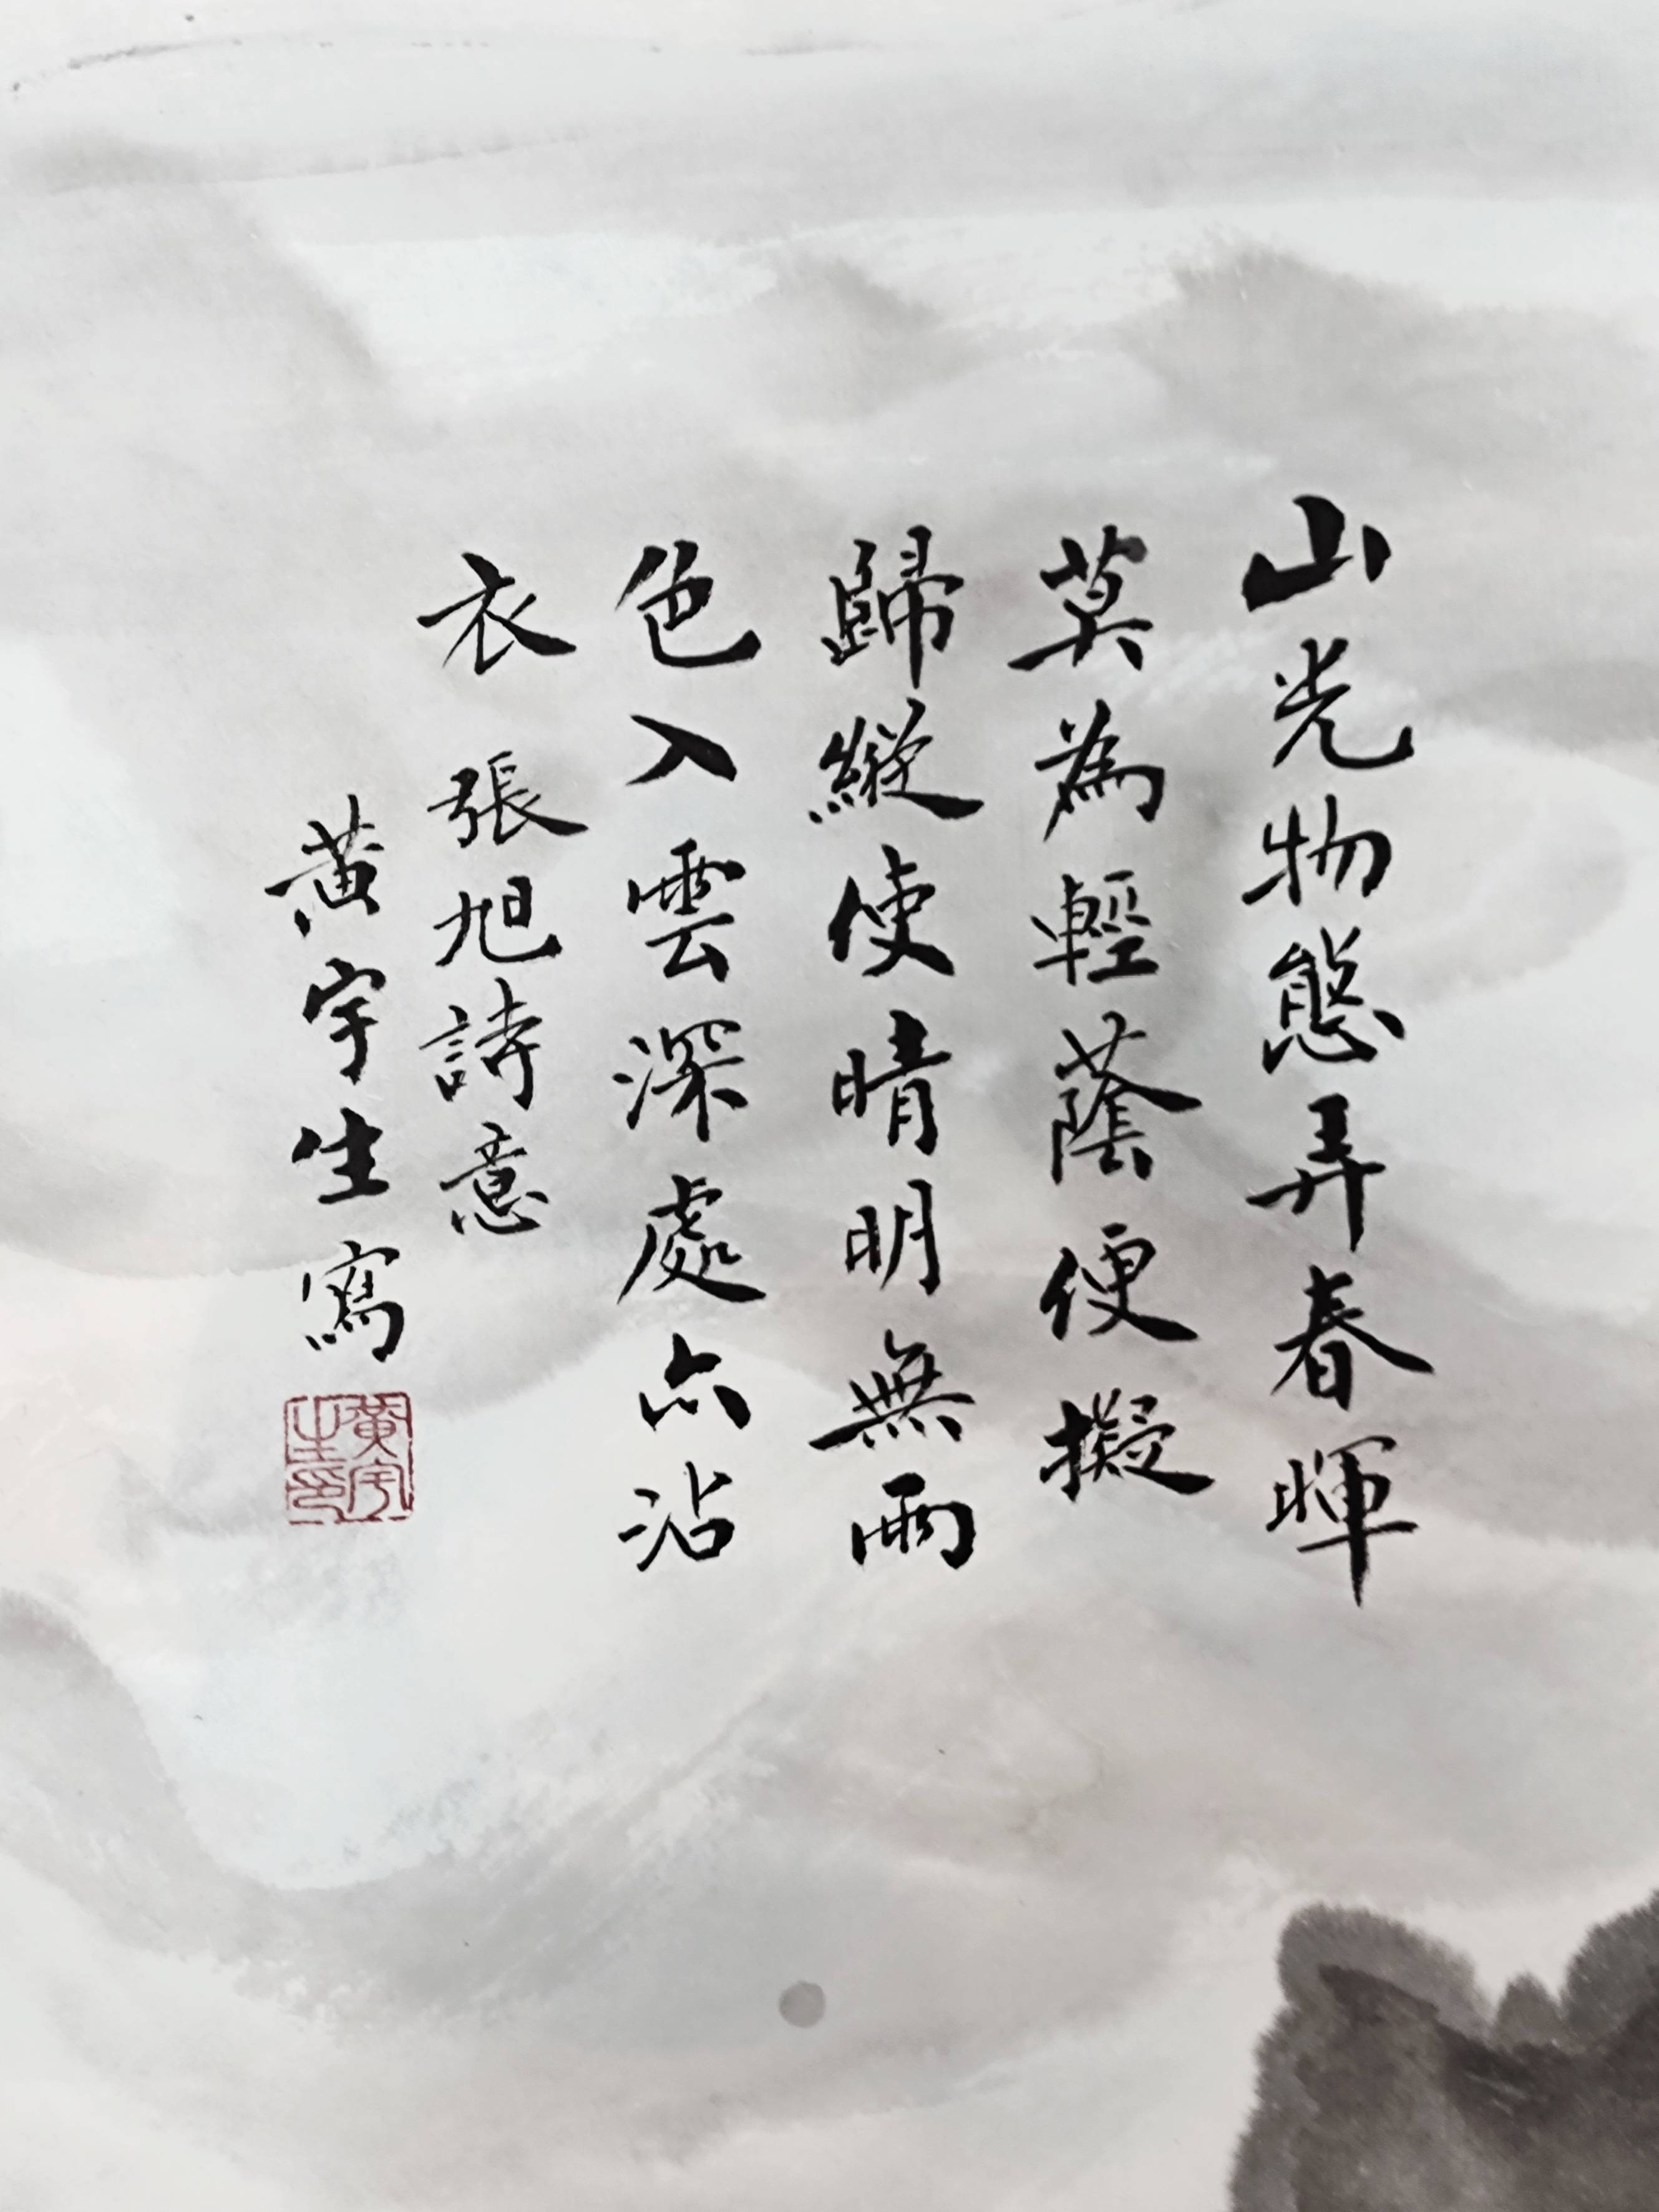 山光物態弄春暉
莫為輕蔭便擬
歸縱使晴明無雨
色入雲深處亦沾
衣 張旭詩意
黃宇生寫
黃宇生印